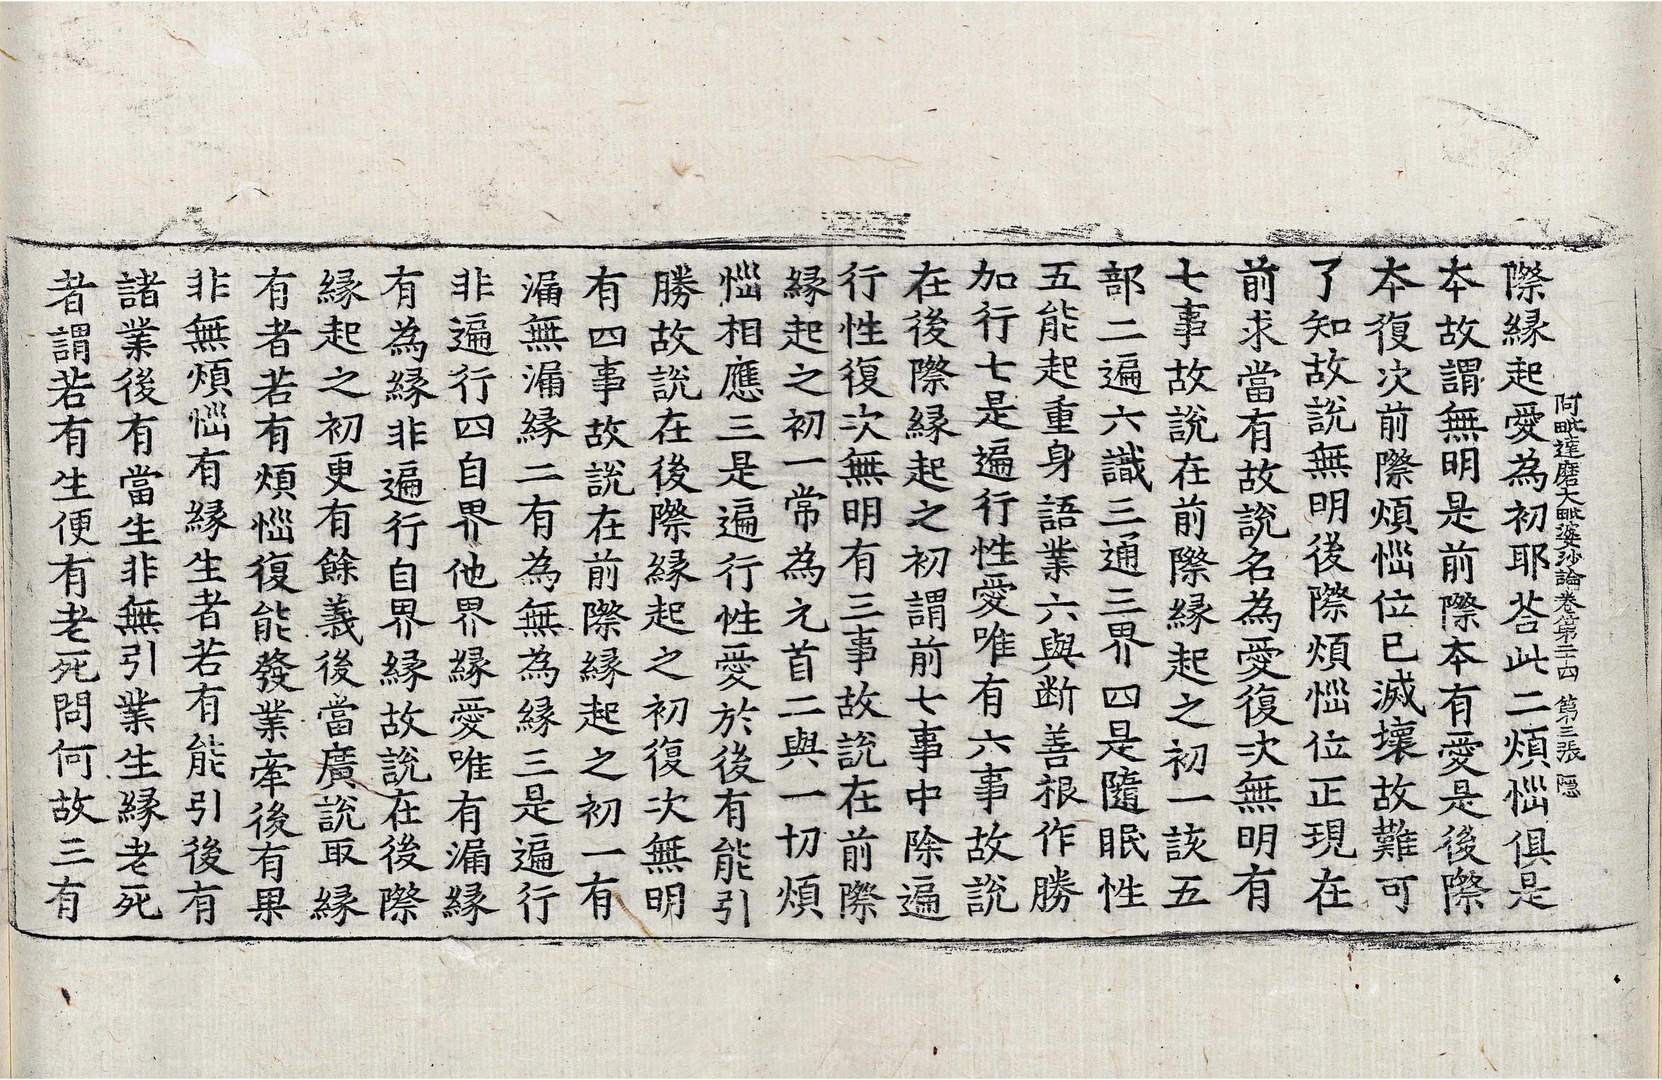 阿毗達磨大毗婆沙論卷第二十四　第三張　隱
際緣起愛為初耶荅此二煩惱俱是
本故謂無明是前際本有愛是後際
本復次前際煩惱位已滅壞故難可
了知故說無明後際煩惱位正現在
前求當有故說名為愛復次無明有
七事故說在前際緣起之初一該五
部二遍六識三通三界四是隨眠性
五能起重身語業六與斷善根作勝
加行七是遍行性愛唯有六事故說
在後際緣起之初謂前七事中除遍
行性復次無明有三事故說在前際
緣起之初一常為元首二與一切煩
惱相應三是遍行性愛於後有能引
勝故說在後際緣起之初復次無明
有四事故說在前際緣起之初一有
漏無漏緣二有為無為緣三是遍行
非遍行四自界他界緣愛唯有漏緣
有為緣非遍行自界緣故說在後際
緣起之初更有餘義後當廣說取緣
有者若有煩惱復能發業牽後有果
非無煩惱有緣生者若有能引後有
諸業後有當生非無引業生緣老死
者謂若有生便有老死問何故三有